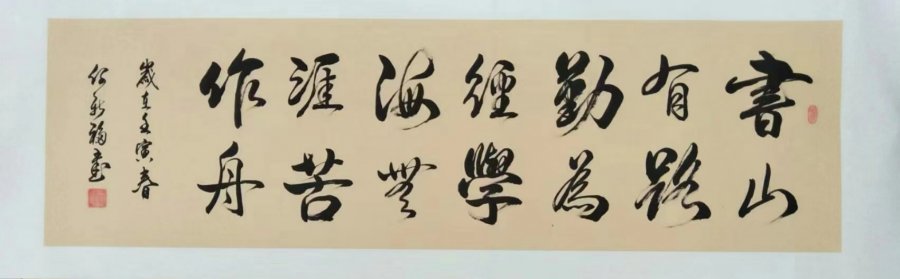 書山
有路
勤為
徑學
海無
涯苦
作舟
歲在壬寅春
任新福書